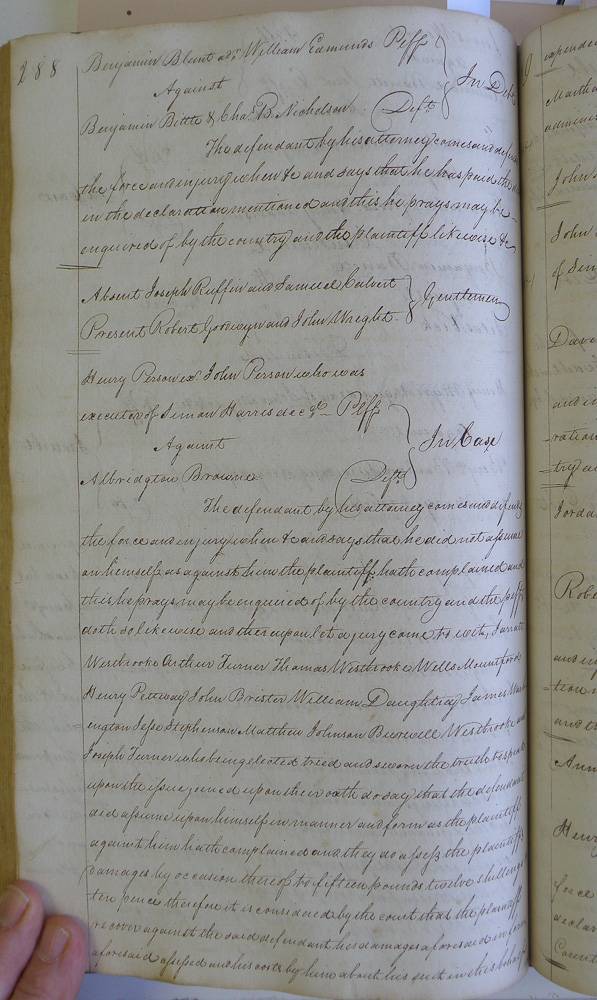 288
Benjamin Blunt adr. William Edmunds Plff
Against
In Debt
Benjamin Bittle & Chas. B. Nicholson Defts
The defendant by his attorney comes and defends
the force and injury when &c and says that he has paid the
in the declaration mentioned and this he prays may be
enquired of by the country and the plaintiff likewise &c
Absent Joseph Ruffin and Samuel Calvert
Gentlemen
Present Robert Goodwyn and John Wright
Henry Person exr. John Person who was
executor of Simon Harris decd. Plff
Against
In Case
Albridgton Browne Deft.
The defendant by his attorney comes and defends
the force and injury when &c and says that he did not assume
on himself as against him the plaintiff hath complained and
this he prays may be enquired of by the country and the plff
doth so likewise and thereupon let a jury come to wit, Jarratt
Westbrooke Arthur Turner Thomas Westbrooke Wells Mountford
Henry Pettway John Brister William Daughtry James Wash
ington Jesse Stephenson Matthew Johnson Burwell Westbrooke and
Joseph Turner who being elected tried and sworn the truth to speak
upon the issue joined upon their oath do say that the defendant
did assume upon himself in manner and form as the plaintiff
against him hath complained and they do assess the plaintiffs
damages by occasion thereof to fifteen pounds twelve shillings
ten pence therefore it is considered by the court that the plaintiff
recover against the said defendant his damages aforesaid in form
aforesaid assessed and his costs by him about his suit in this behalf
expended
Martha
adminis
John
John
of Sim
and
ration
try a
Jorda
Robe
tion
and
Ann
Henry
force
declar
Count